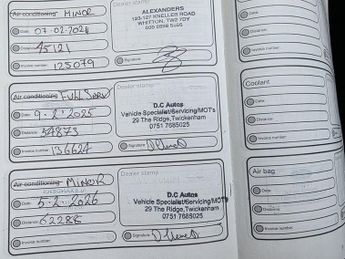 Air conditioning MINOR
Date 07-02-2024
Distance 45121
Invoice number 125079
Dealer stamp
ALEXANDERS
123-127 KNELLER ROAD
WHITTON, TW2 7DY
Signature
Air conditioning FULL SERV
Date 9-2-2025
Distance 54873
Invoice number 136624
Dealer stamp
D.C Autos
Vehicle Specialist/Servicing/MOTs
29 The Ridge, Twickenham
0751 7685025
Signature
Air conditioning MINOR
Date 5-2-2026
Distance 62288
Invoice number
Dealer stamp
D.C Autos
Vehicle Specialist/Servicing/MOTs
29 The Ridge, Twickenham
0751 7685025
Signature
Date
Distance
Invoice number
Coolant
Date
Distance
Invoice number
Air bag
Date
Distance
Invoice number